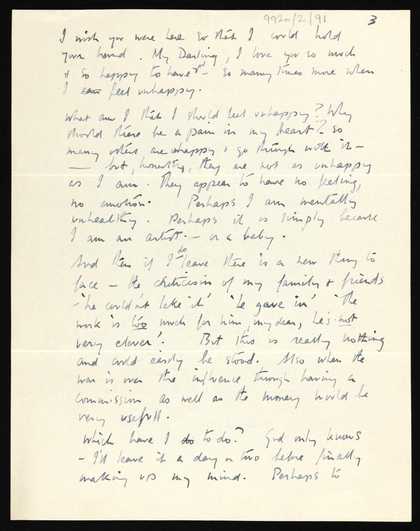 9920/2/91
3
I wish you were here so that I could hold
your hand. My Darling, I love you so much
& so happy to have — so many times more when
I feel unhappy.
What am I that I should feel unhappy? Why
should there be a pain in my heart? So
many others are unhappy & go through with it —
— but, honestly, they are not as unhappy
as I am. They appear to have no feeling,
no emotion. Perhaps I am mentally
unhealthy. Perhaps it is simply because
I am an artist — or a baby.
And then if I do leave there is a new thing to
face – the criticism of my family & friends
– 'he couldn't like it' 'he gave in' 'the
work is too much for him, my dear, he's not
very clever'. But this is really nothing
and could easily be stood. Also when the
war is over the influence through having a
commission as well as the money would be
very usefull.
Which have I do to do? God only knows
– I'll leave it a day or two before finally
making up my mind. Perhaps to